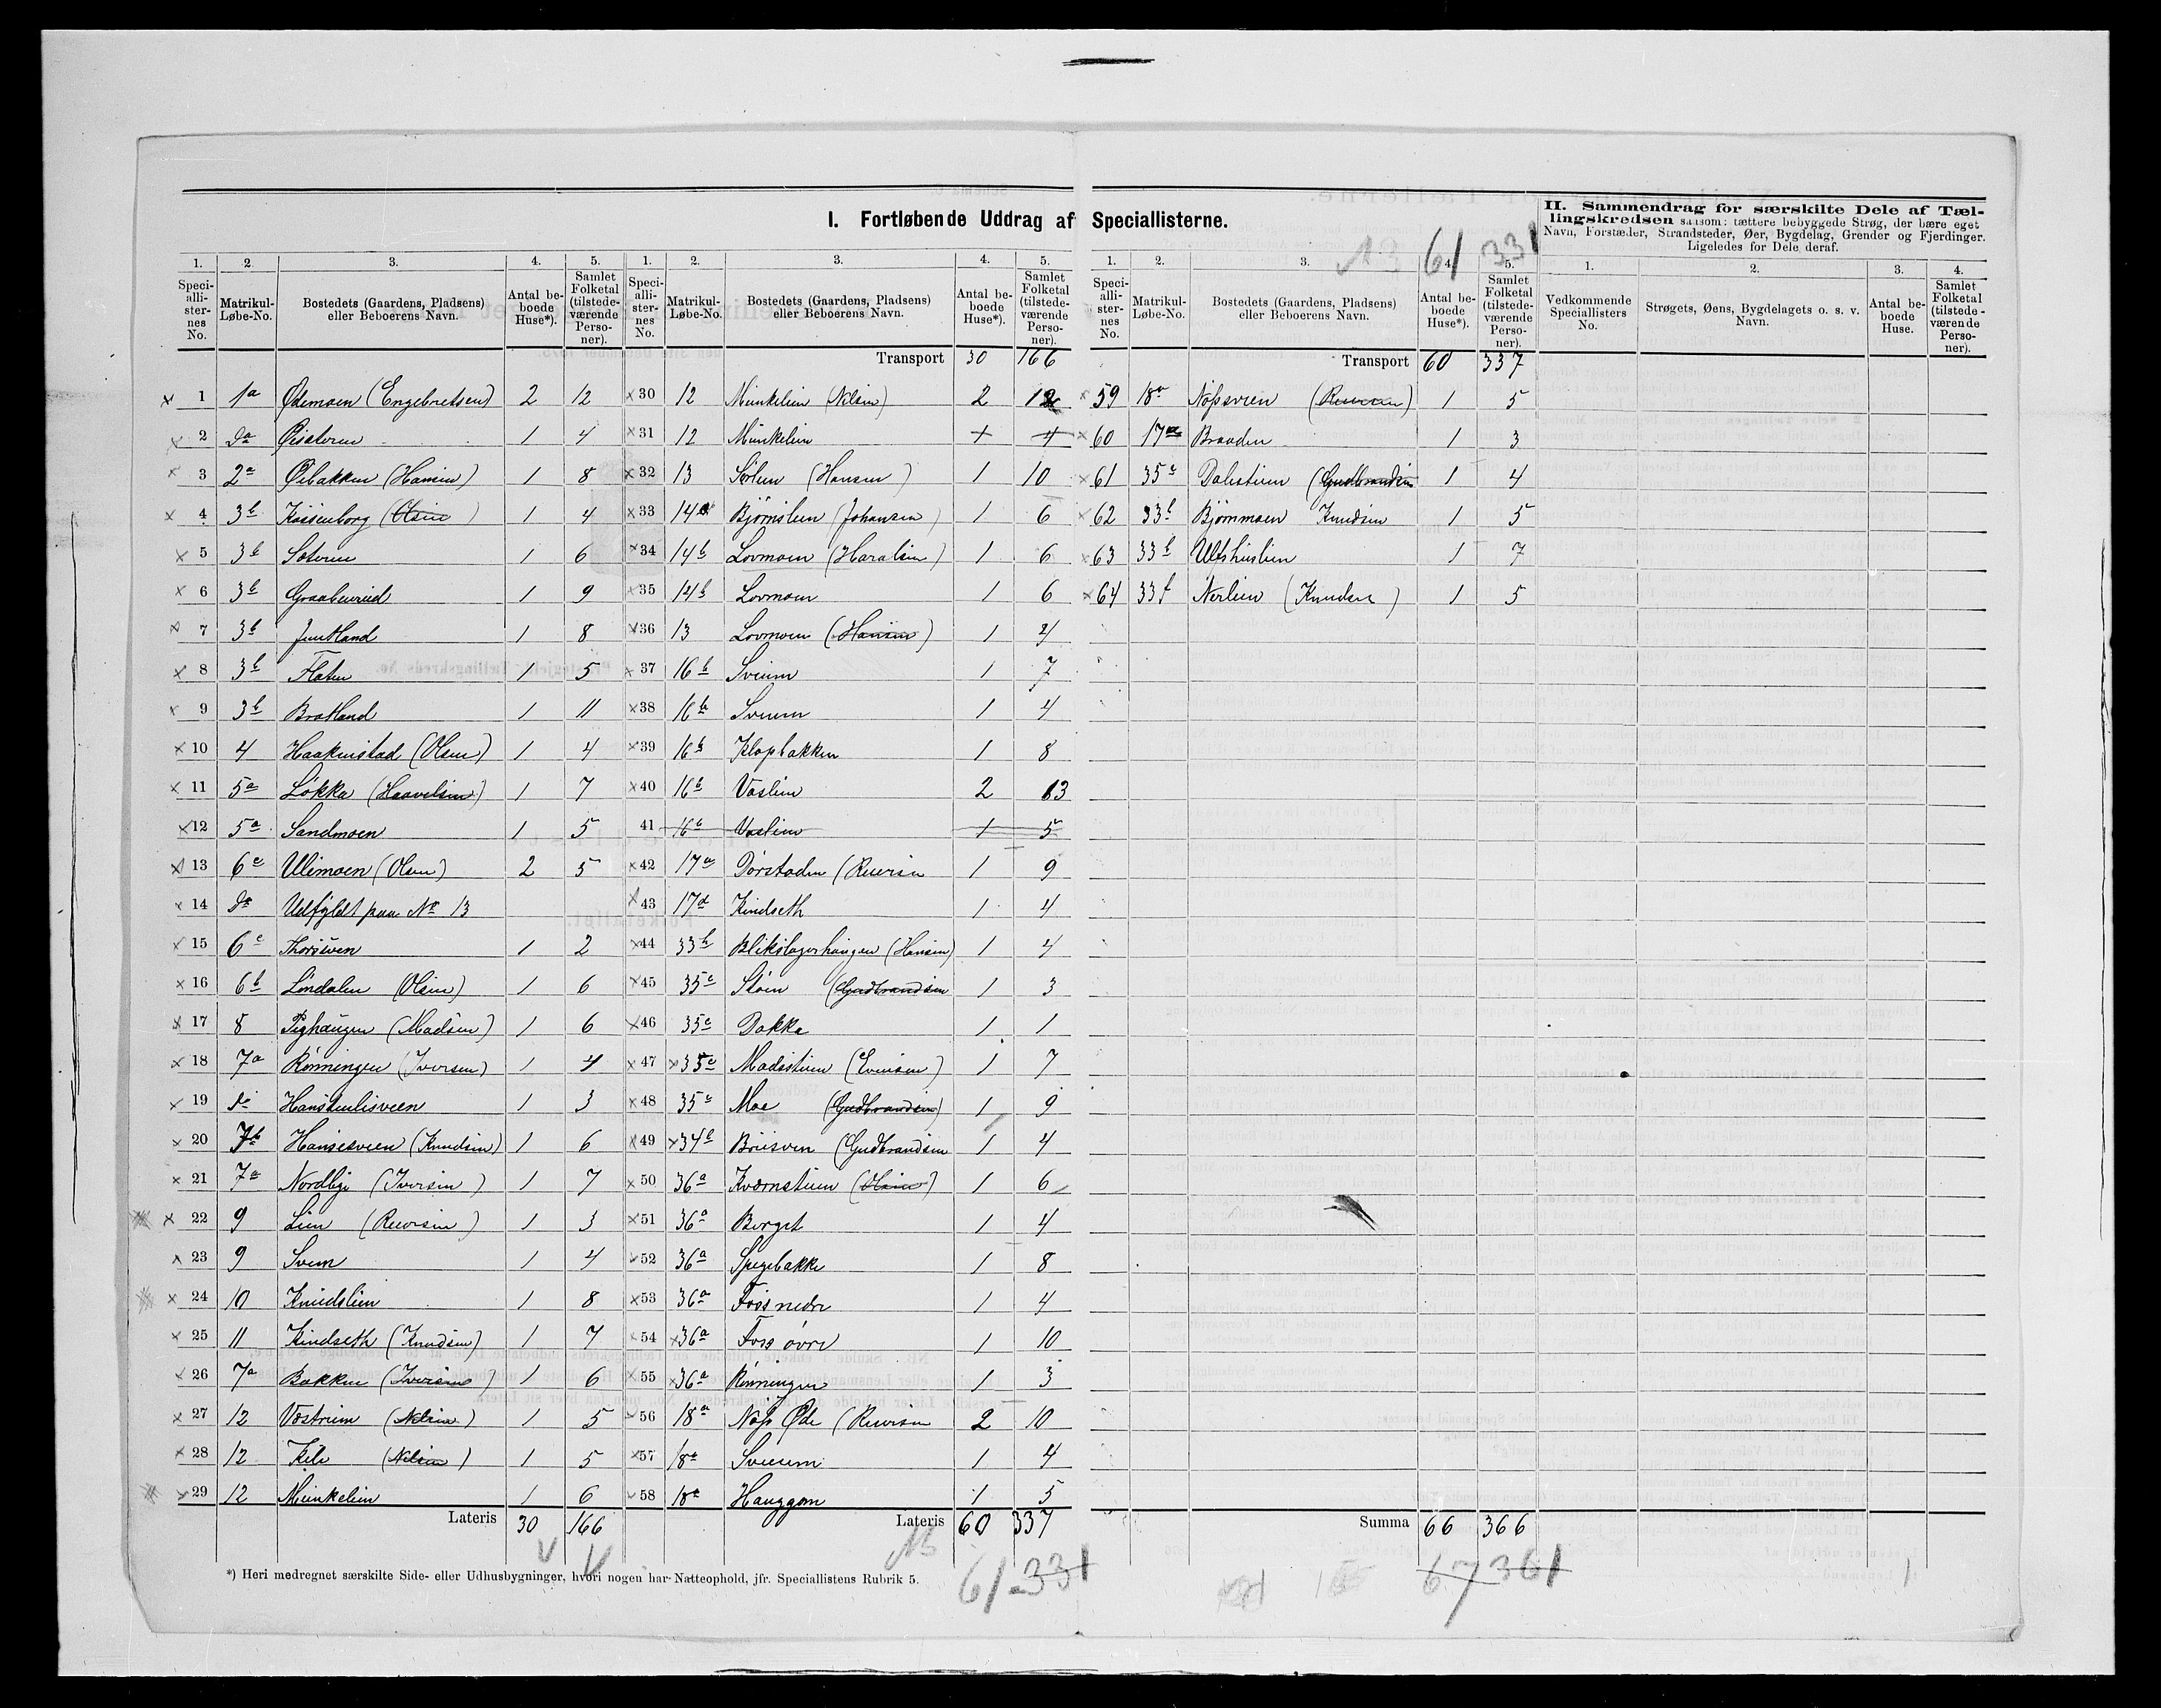 I. Fortløbende Uddrag af Speciallisterne.
II. Sammendrag for særskilte Dele af Tællingskredsen saasom: tættere bebyggede Strøg, der bære eget
Navn, Forstæder, Strandsteder, Øer, Bygdelag, Grender og Fjerdinger.
Ligeledes for Dele deraf.
61 331
1. 2. 3. 4. 5. 1. 2. 3. 4. 5. 1. 2. 3. 4. 5. 1. 2. 3. 4.
Speciallisternes No. Matrikul-Løbe-No. Bostedets (Gaardens, Pladsens) eller Beboerens Navn. Antal beboede Huse*). Samlet Folketal (tilstedeværende Personer).
Speciallisternes No. Matrikul-Løbe-No. Bostedets (Gaardens, Pladsens) eller Beboerens Navn. Antal beboede Huse*). Samlet Folketal (tilstedeværende Personer).
Speciallisternes No. Matrikul-Løbe-No. Bostedets (Gaardens, Pladsens) eller Beboerens Navn. Antal beboede Huse*). Samlet Folketal (tilstedeværende Personer).
Vedkommende Speciallisters No. Strøgets, Øens, Bygdelagets o. s. v. Navn. Antal beboede Huse. Samlet Folketal (tilstedeværende Personer).
1 1a Ødemoen (Engebretsen) 2 12
2 da Øisteren 1 4
3 2a Øibakken (Hansen) 1 8
4 3b Kassenborg (Olsen) 1 4
5 3b Soteren 1 6
6 3b 1 9
7 3b Juutland 1 8
8 3b Flaten 1 5
9 3b Bratland 1 11
10 4 Haakenstad (Olsen) 1 4
11 5a Løkka (Haavelsen) 1 7
12 5a Sandmoen 1 5
13 6a Ulimoen (Olsen) 2 5
14 do Udfyldt paa No 13
15 6c 1 2
16 6b Lindalen (Olsen) 1 6
17 8 Pighaugen (Madsen) 1 6
18 7a Rønningen (Iversen) 1 4
19 do 1 3
20 7b Hansesveen (Knudsen) 1 6
21 7a Nordbye (Iversen) 1 7
22 9 Lien (Reiersen) 1 3
23 9 Sveen 1 4
24 10 Knudslien 1 8
25 11 Kindseth (Knudsen) 1 7
26 7a Bakken (Iversen) 1 6
27 12 Vestrum (Nilsen) 1 5
28 12 Kile (Nilsen) 1 5
29 12 Munkelien 1 6
Lateris 30 166
Transport 30 166
30 12 Munkelien (Nilsen) 2 12
31 12 Munkelien
32 13 Sølien (Hansen) 1 10
33 14a Bjørnslien (Johansen) 1 6
34 14b Lovmoen (Haralsen) 1 6
35 14b Lovmoen 1 6
36 13 Lovmoen (Hansen) 1 4
37 16b Sveum 1 7
38 16b Sveum 1 4
39 16b Klopbakken 1 8
40 16b Vaslien 2 13
41 16b Vaslien 1 5
42 17a Dørstaden (Reiersen 1 9
43 17d Kindseth 1 4
44 33b Blikslagerhaugen (Hansen) 1 4
45 35c Støen (Gudbrandsen 1 3
46 35c Dokka 1 1
47 35c Madsstuen (Evensen) 1 7
48 35c Moe (Gudbrandsen) 1 9
49 34b (Gudbrandsen 1 4
50 36a Kværnstuen (Olsen) 1 6
51 36a Berget 1 4
52 36a Spegebakke 1 8
53 36a Foss nedre 1 4
54 36a Foss øvre 1 10
55 36a Rønningen 1 3
56 18a Nøss Øde (Reiersen 2 10
57 18a Sveum 1 4
58 18a Hauggom 1 5
Lateris 60 337
61 - 331
Transport 60 337
59 18a Nøssveen 1 5
60 17a Braaden 1 3
61 35c Dalestuen (Gudbrandsen 1 4
62 33b Bjørnmoen Knudsen 1 5
63 33b Ulfshuslien 1 7
64 33f Nerlien (Knudsen) 1 5
Summa 66 366
67 361
*) Heri medregnet særskilte Side- eller Udhusbygninger, hvori nogen har Natteophold, jfr. Speciallistens Rubrik 5.